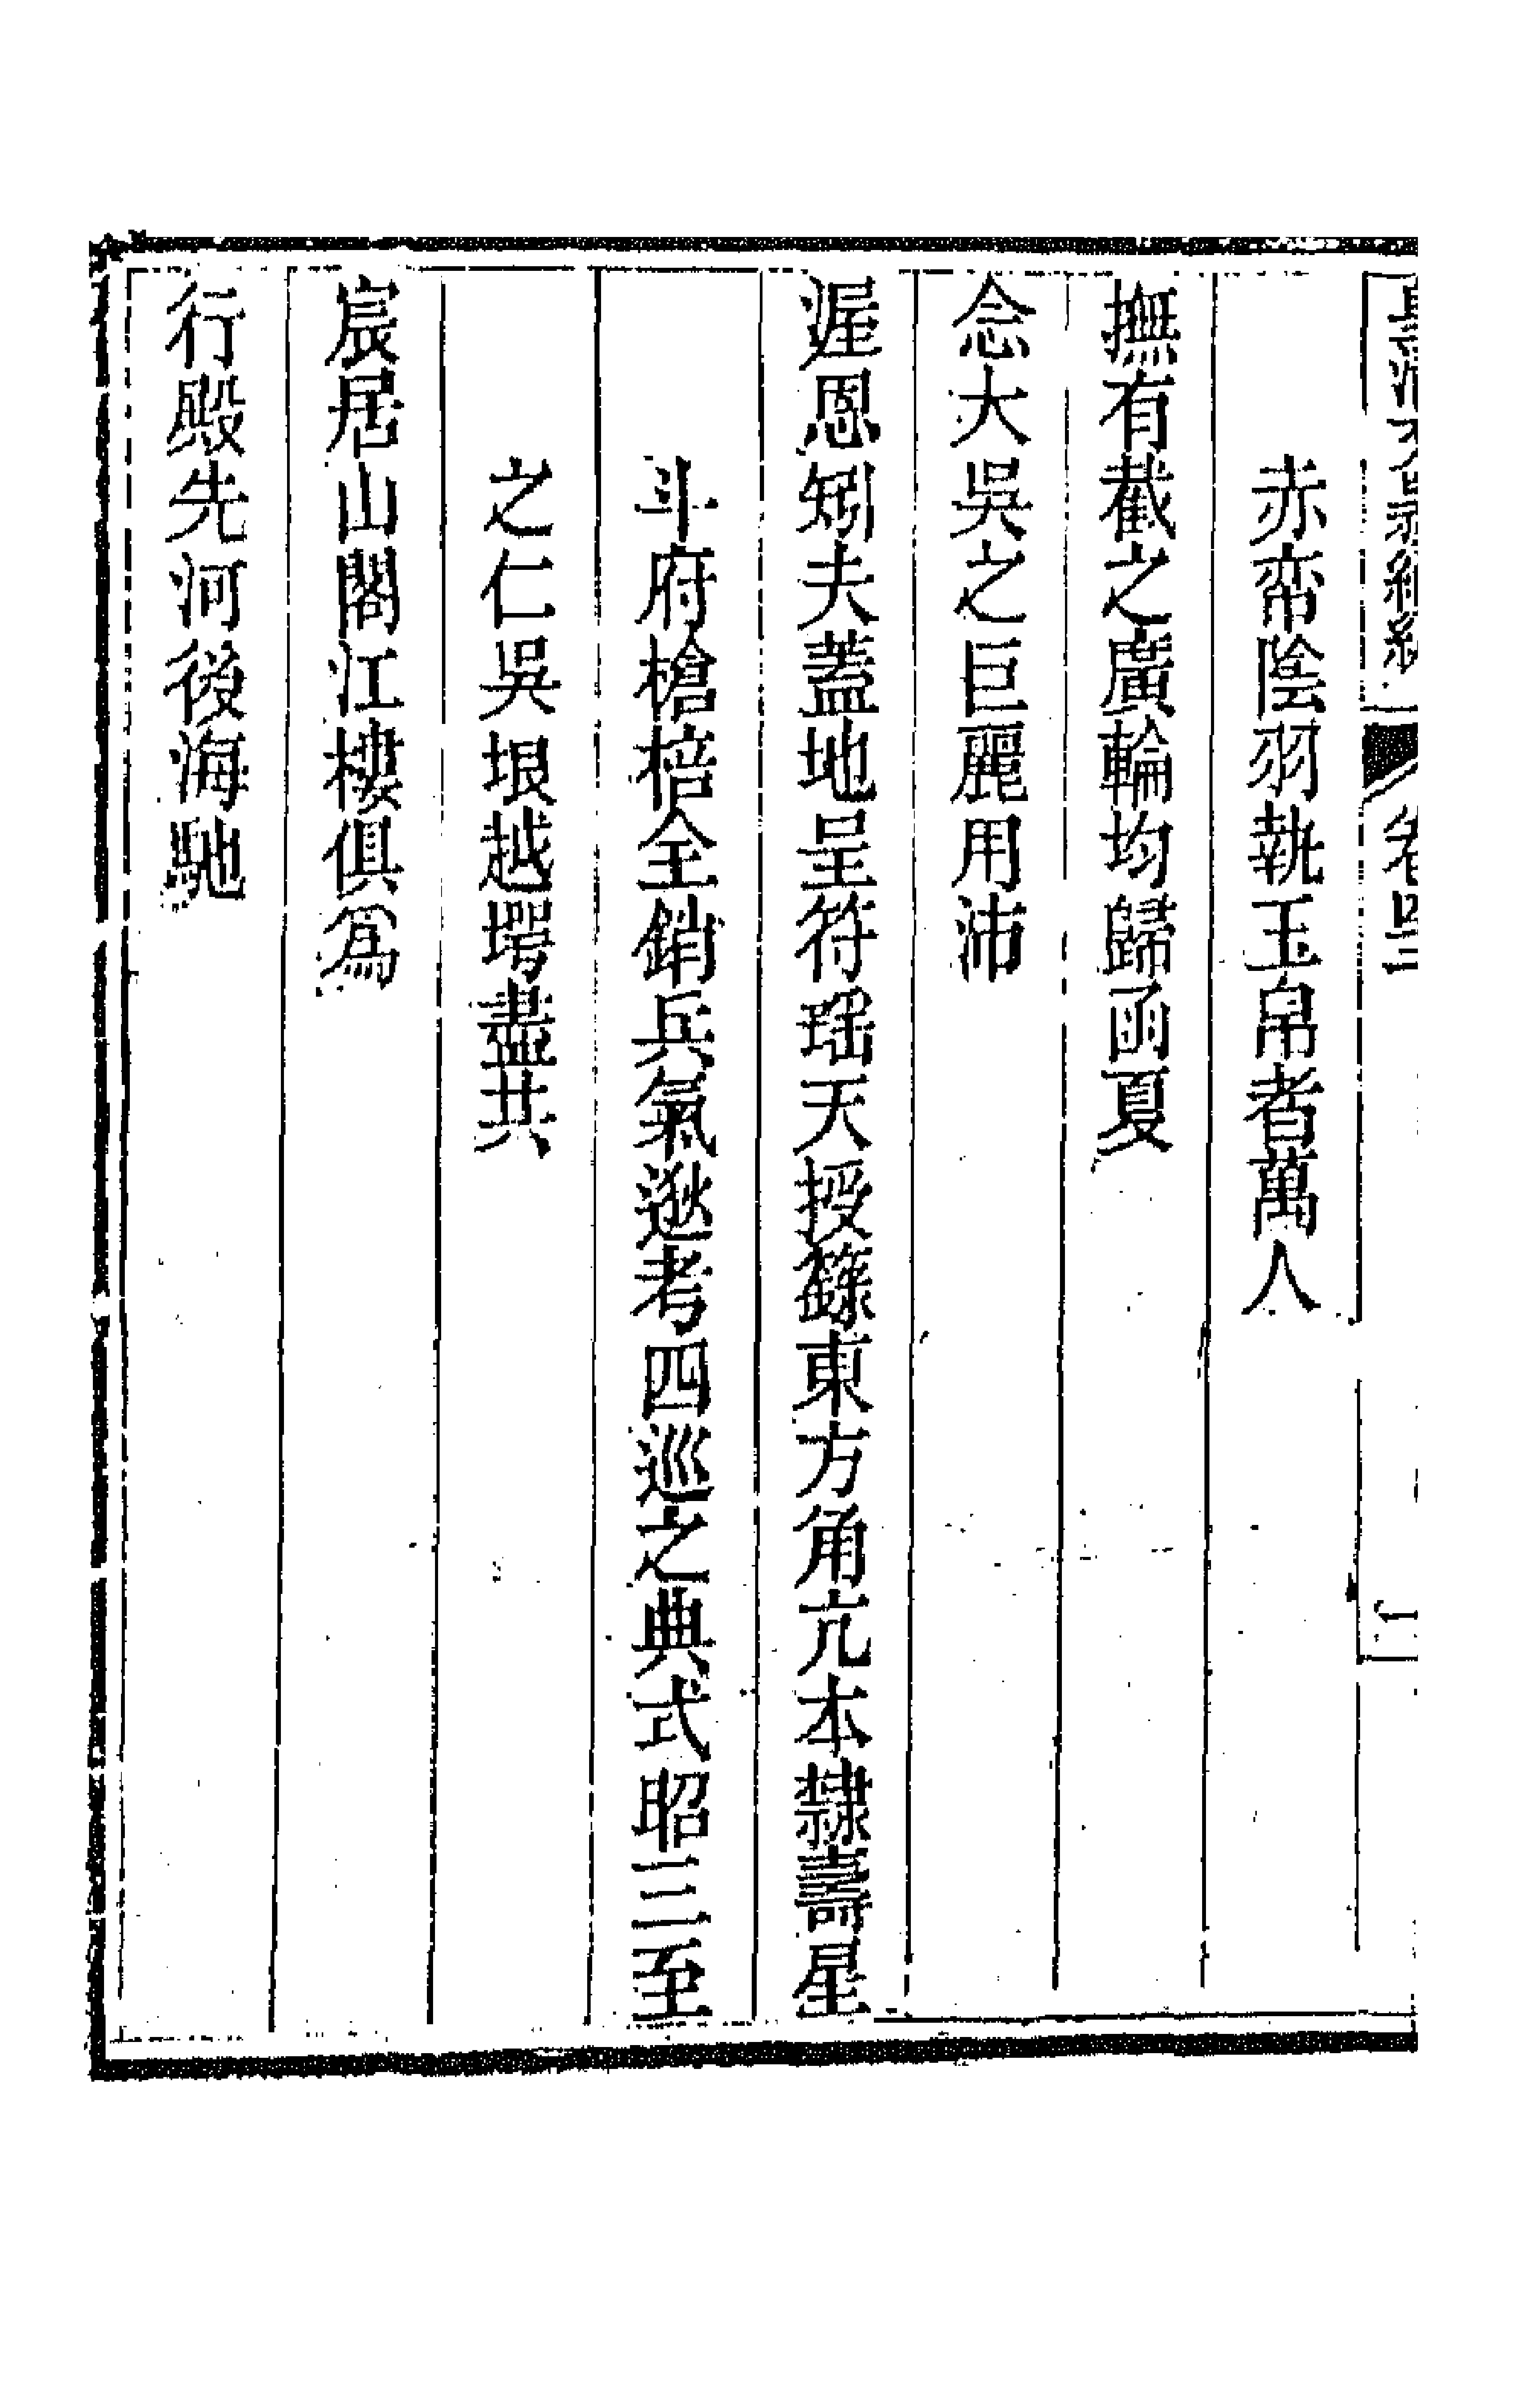 卷四
赤帟陰羽執玉帛者萬人
撫有截之廣輪均歸函夏
念大吳之巨麗用沛
渥恩矧夫蓋地呈符瑤天授籙東方角亢本隸壽星
斗府槍棓全銷兵氣逖考四巡之典式昭三至
之仁吳垠越堮盡共
宸居山閣江樓俱爲
行殿先河後海馳